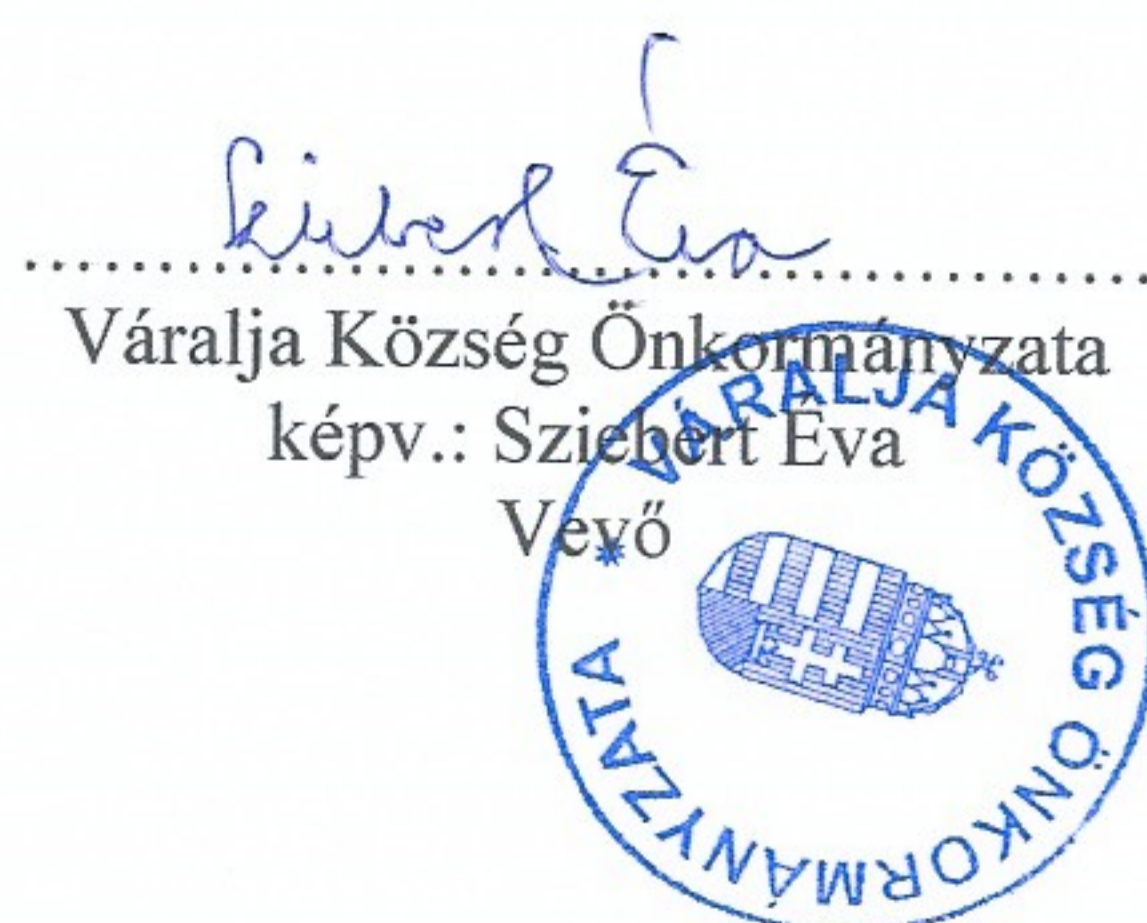 Sziebert Éva
Váralja Község Önkormányzata
képv.: Sziebert Éva
Vevő
VÁRALJA KÖZSÉG ÖNKORMÁNYZATA *